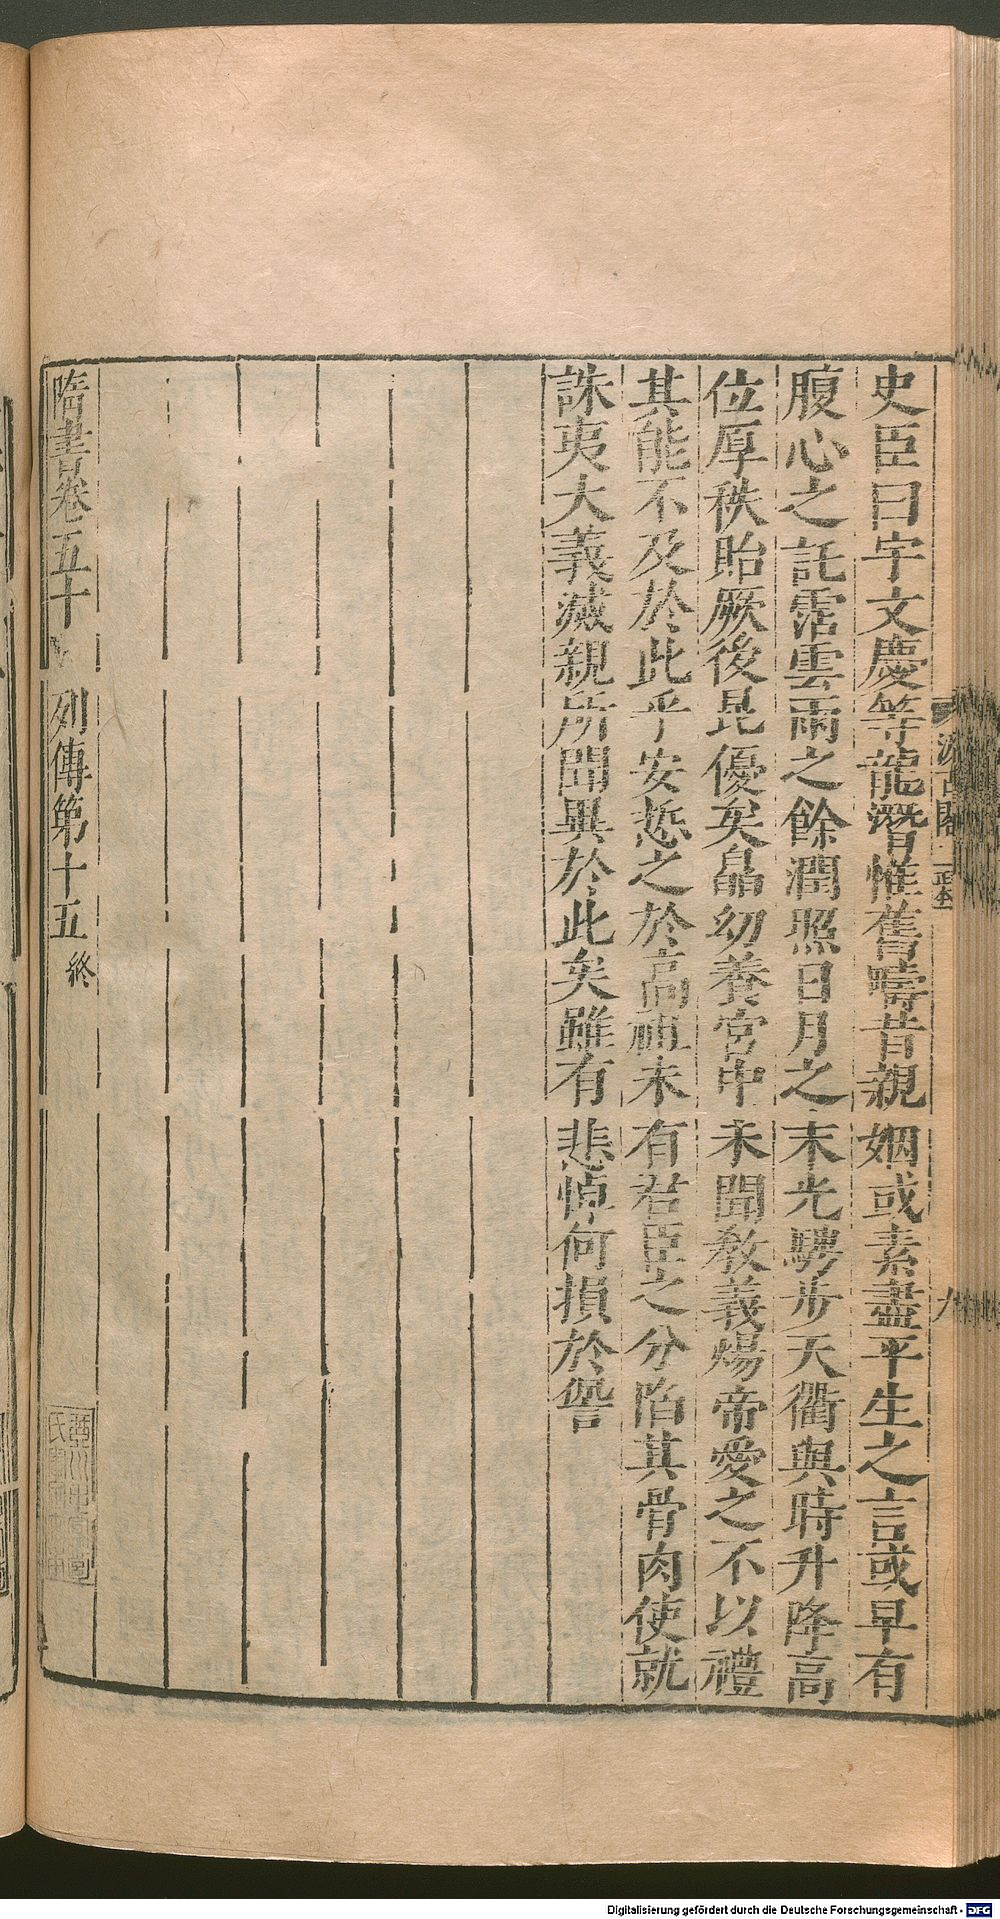 史臣曰宇文慶等龍潛惟舊疇昔親姻或素盡平生之言或早有
腹心之託霑雲雨之餘潤照日月之末光騁步天衢與時升降高
位厚秩貽厥後昆優矣皛幼養宮中未聞教義煬帝愛之不以禮
其能不及於此乎安悊之於高祖未有君臣之分陷其骨肉使就
誅夷大義滅親所聞異於此矣雖有悲悼何損於侃
隋書卷五十
列傳第十五
終
汲古閣
九
Digitalisierung gefördert durch die Deutsche Forschungsgemeinschaft - DFG